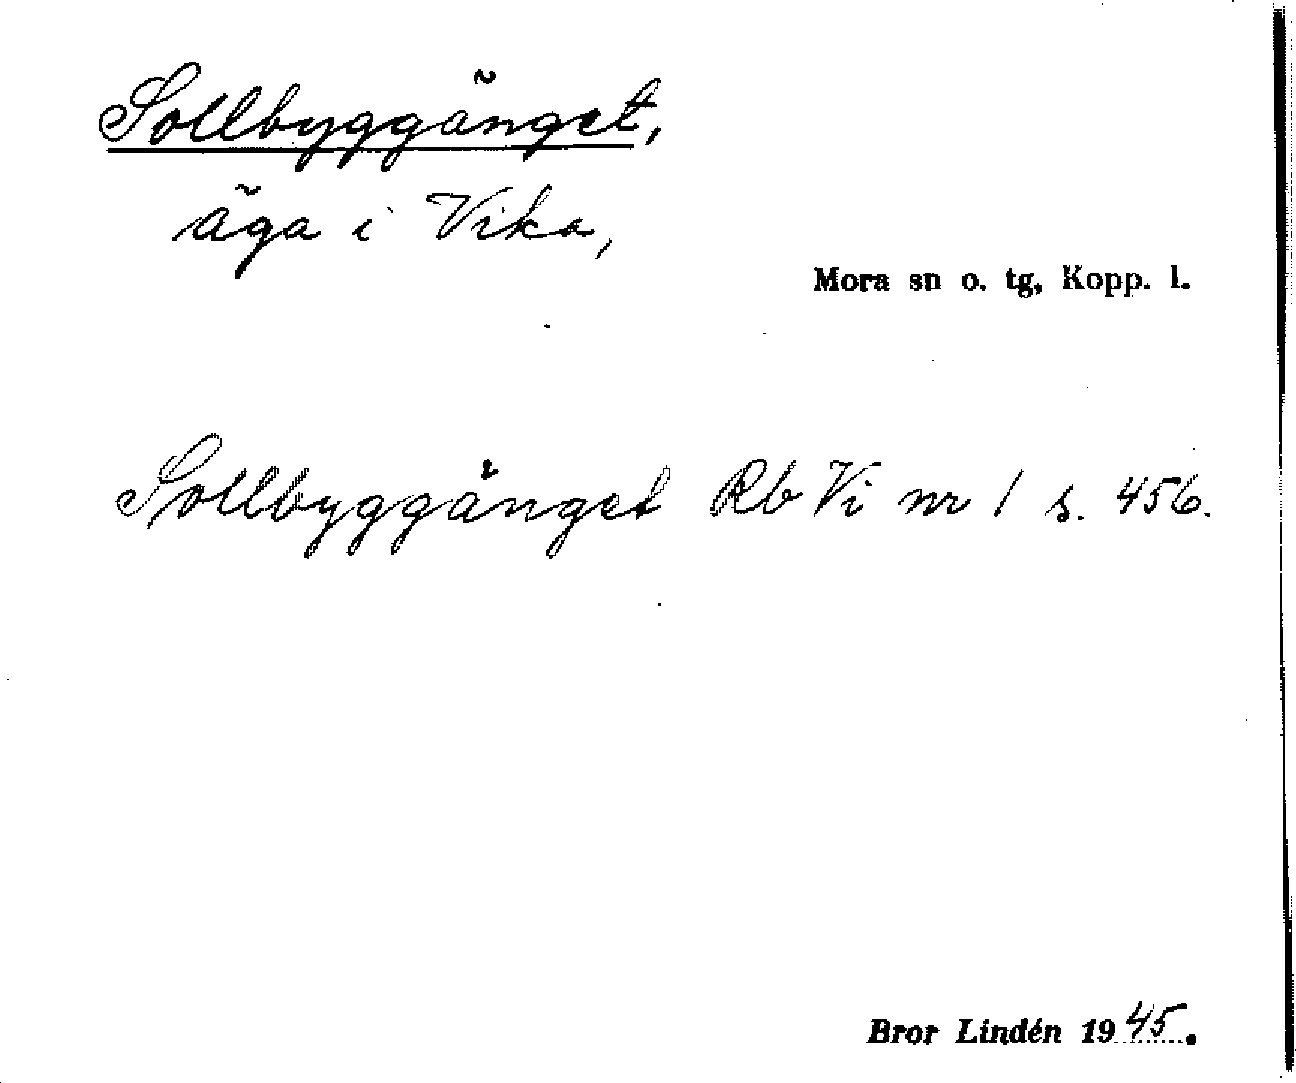 Sollbyggänget,
äga i Vika,
Mora sn o. tg, Kopp. l.
Sollbyggånget Rb Vi nr 1 s. 456.
Bror Lindén 1945.